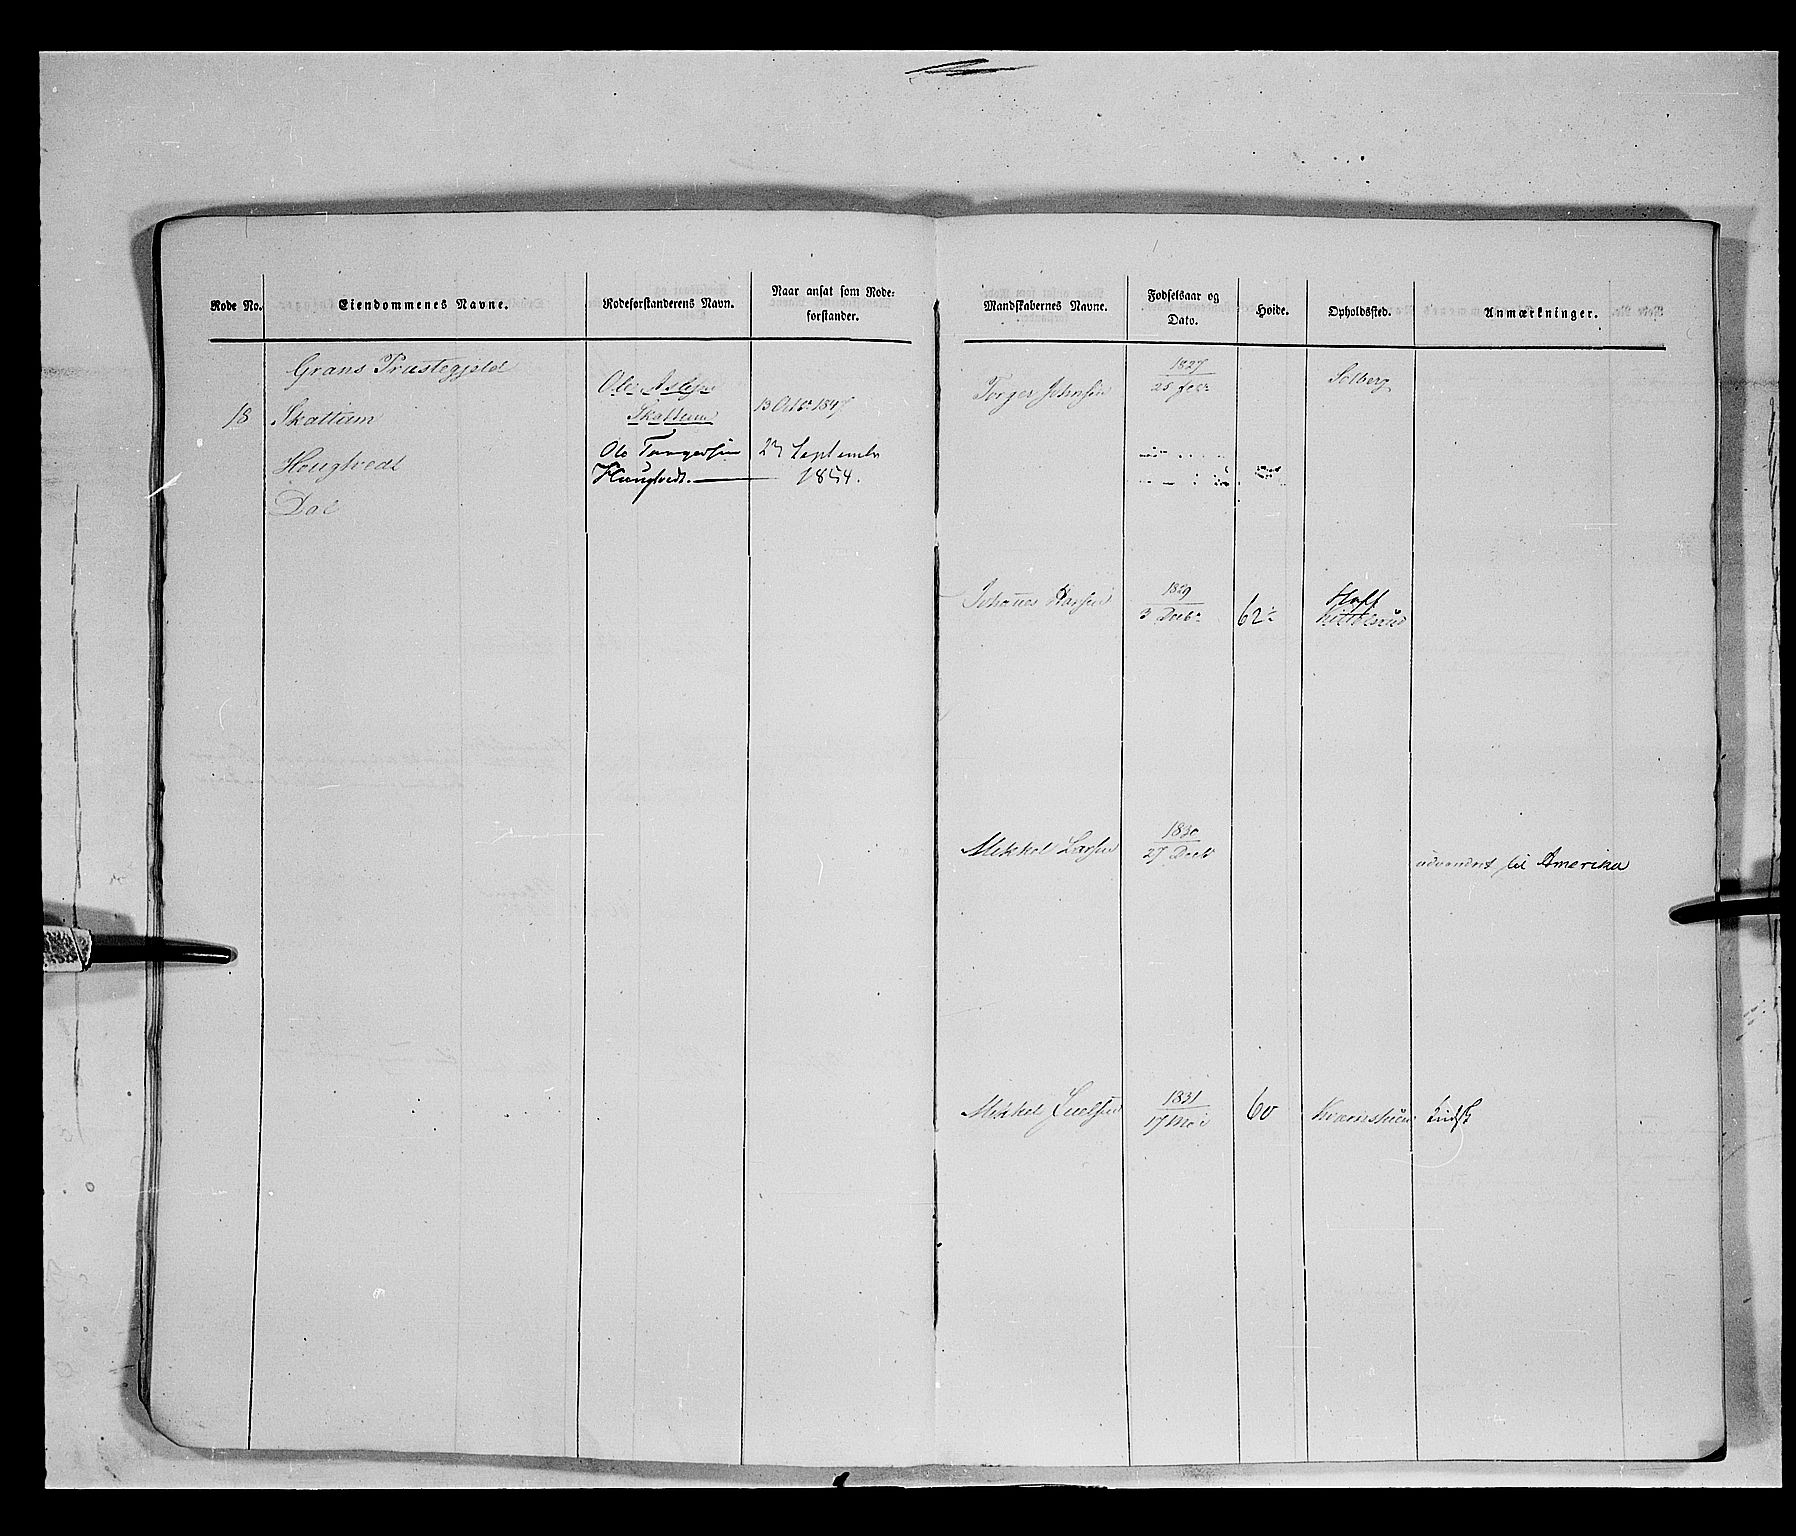 Rode No.
Eiendommenes Navne.
Rodeforstanderens Navn.
Naar ansat som Rode-
forstander.
Grans Præstegjeld
18 Skattum
Hougtvedt
Dal
Ole
Skattum
13 Octbr 1847
Ole Torgersen
Hougtvedt.
27 September
1854.
Mandskabernes Navne.
Fødselsaar og
Dato.
Høide.
Opholdssted.
Anmærkninger.
Torger Johnsen
1827
25 febr
Solberg
Johannes Larsen
1829
3 Decbr
62
Hoff
Mikkel Larsen
1830
27 Decbr
udvandret til Amerika
Mikkel
1831
17 Mai
60